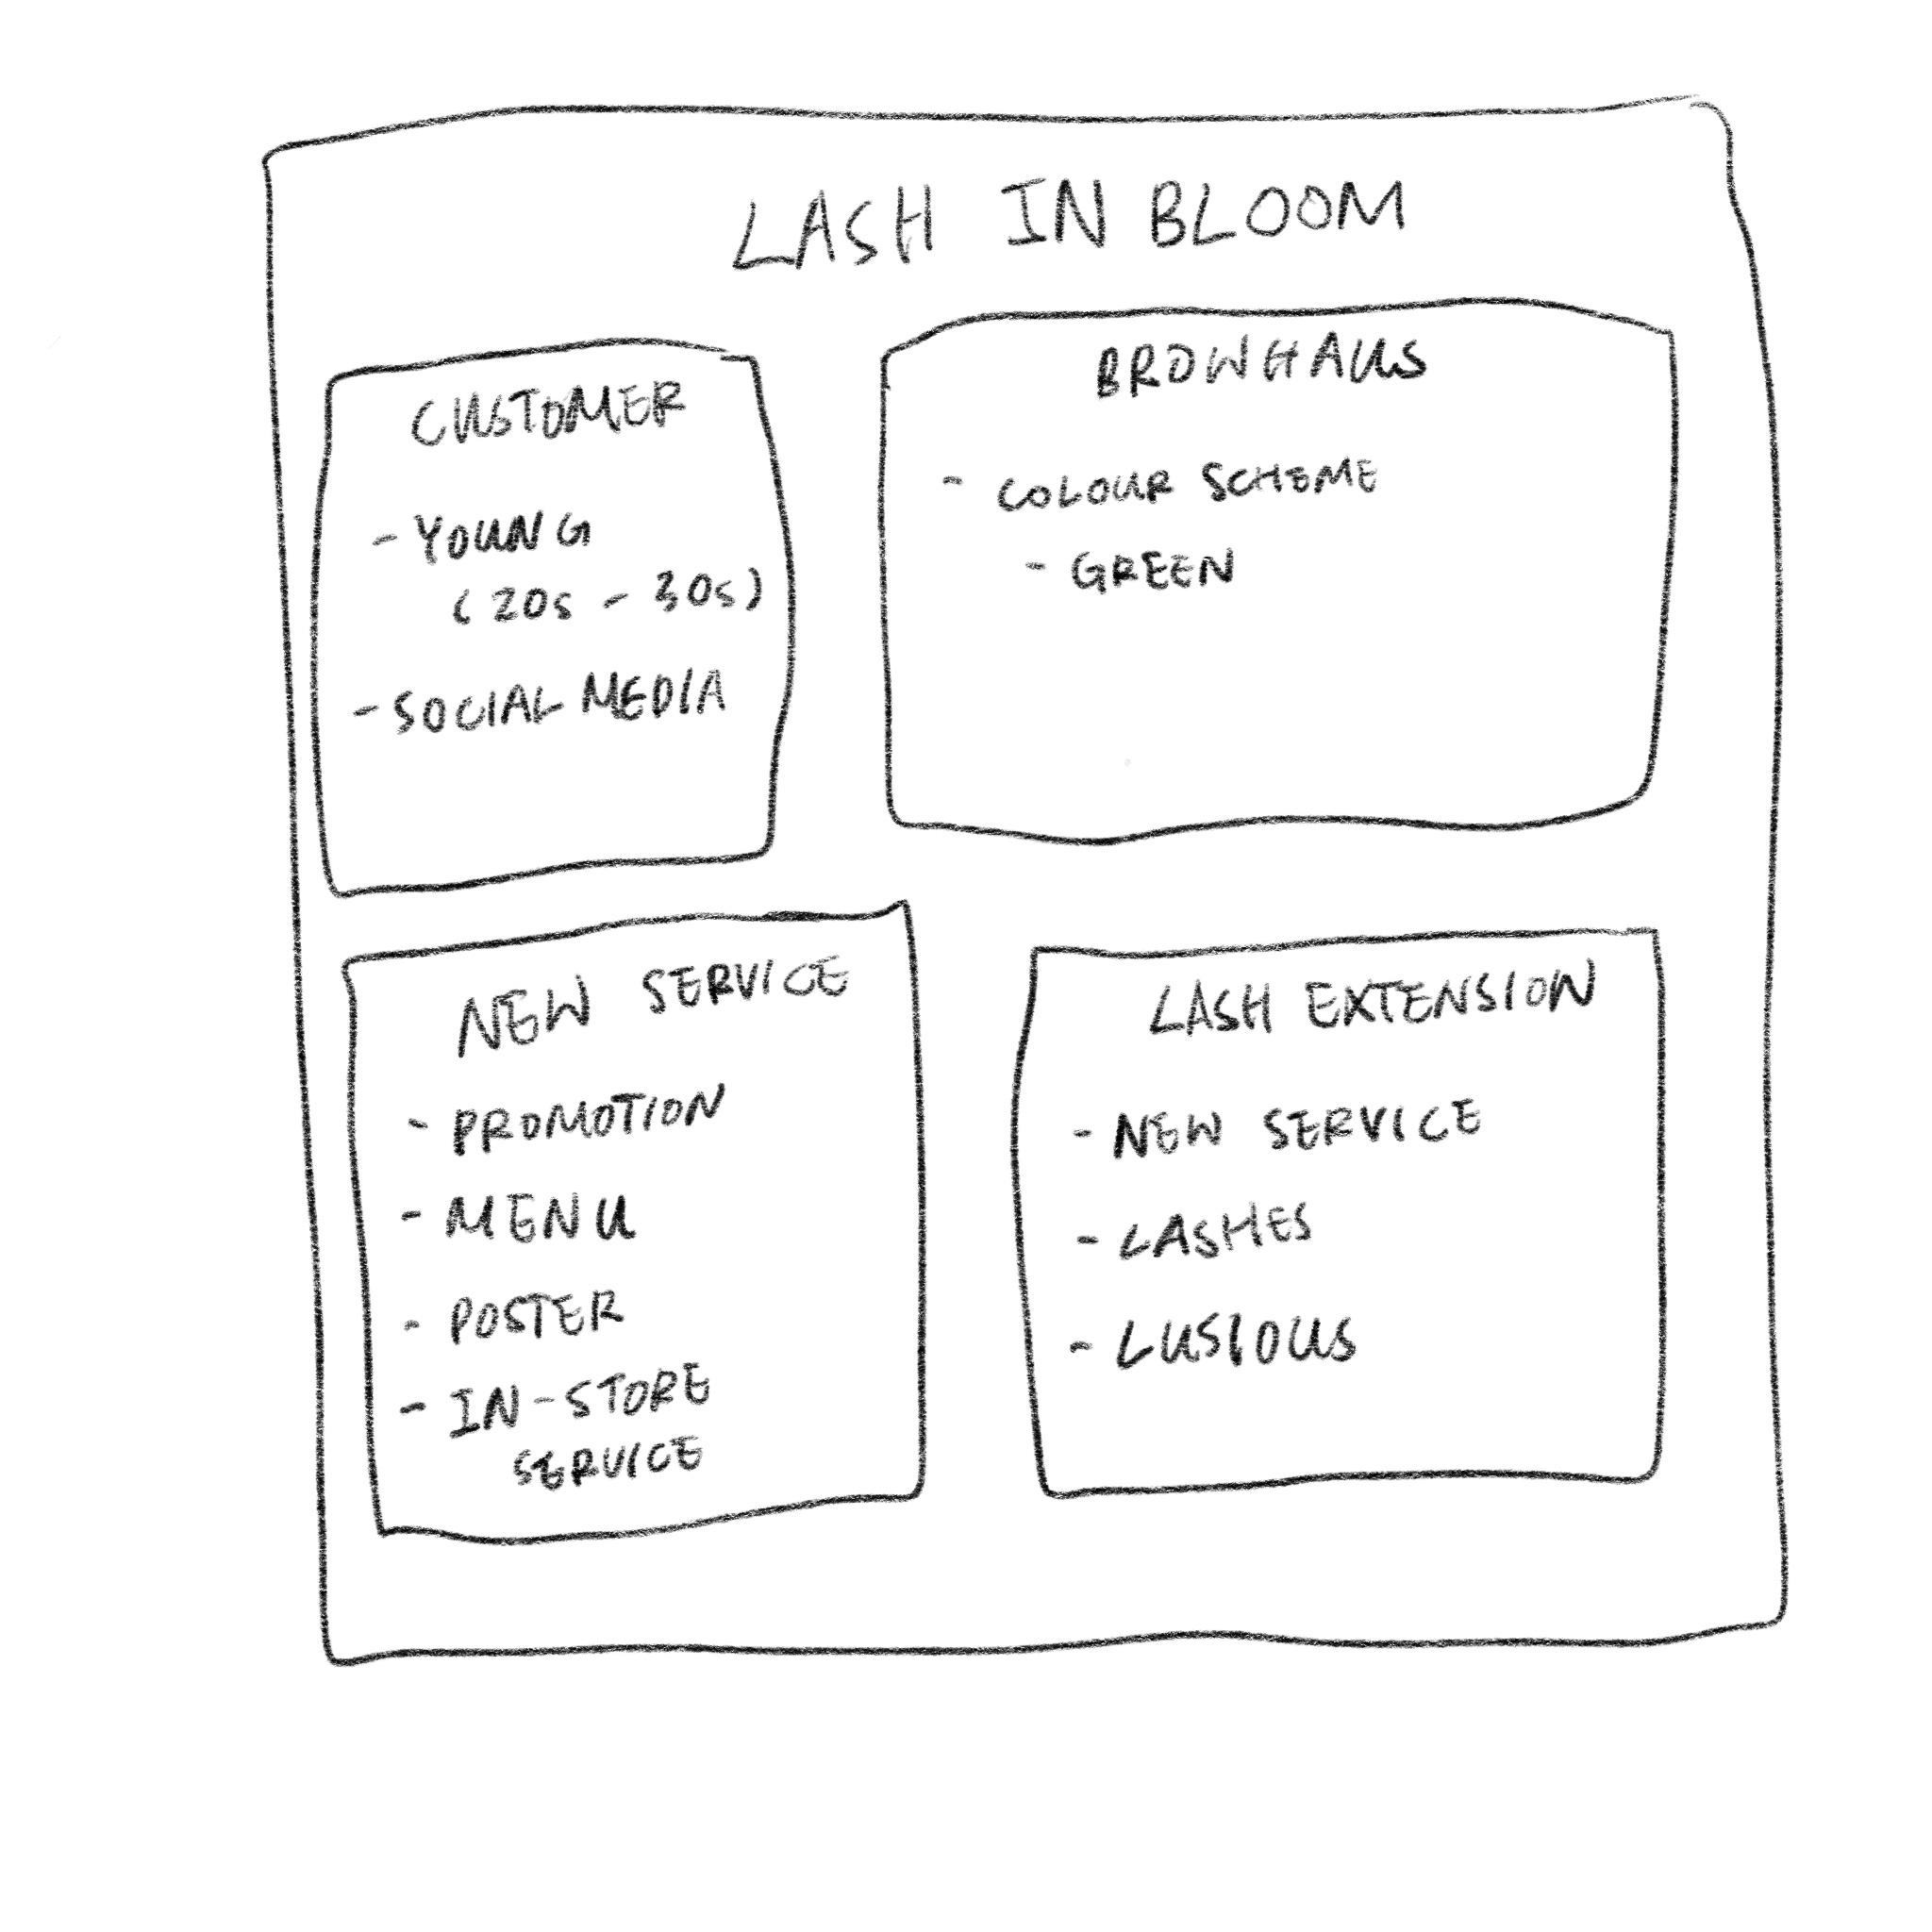 LASH IN BLOOM
CUSTOMER
- YOUNG
(20s - 30s)
- SOCIAL MEDIA
BROWHAUS
- COLOUR SCHEME
- GREEN
NEW SERVICE
- PROMOTION
- MENU
- POSTER
- IN-STORE
SERVICE
LASH EXTENSION
- NEW SERVICE
- LASHES
- LUSIOUS